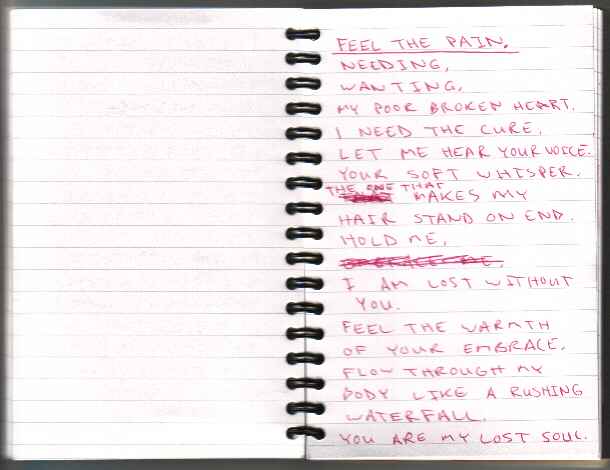 FEEL THE PAIN.
NEEDING,
WANTING,
MY POOR BROKEN HEART.
I NEED THE CURE.
LET ME HEAR YOUR VOICE.
YOUR SOFT WHISPER.
THE ONE THAT
MAKES MY
HAIR STAND ON END.
HOLD ME,
EMBRACE ME.
I AM LOST WITHOUT
YOU.
FEEL THE WARMTH
OF YOUR EMBRACE.
FLOW THROUGH MY
BODY LIKE A RUSHING
WATERFALL.
YOU ARE MY LOST SOUL.